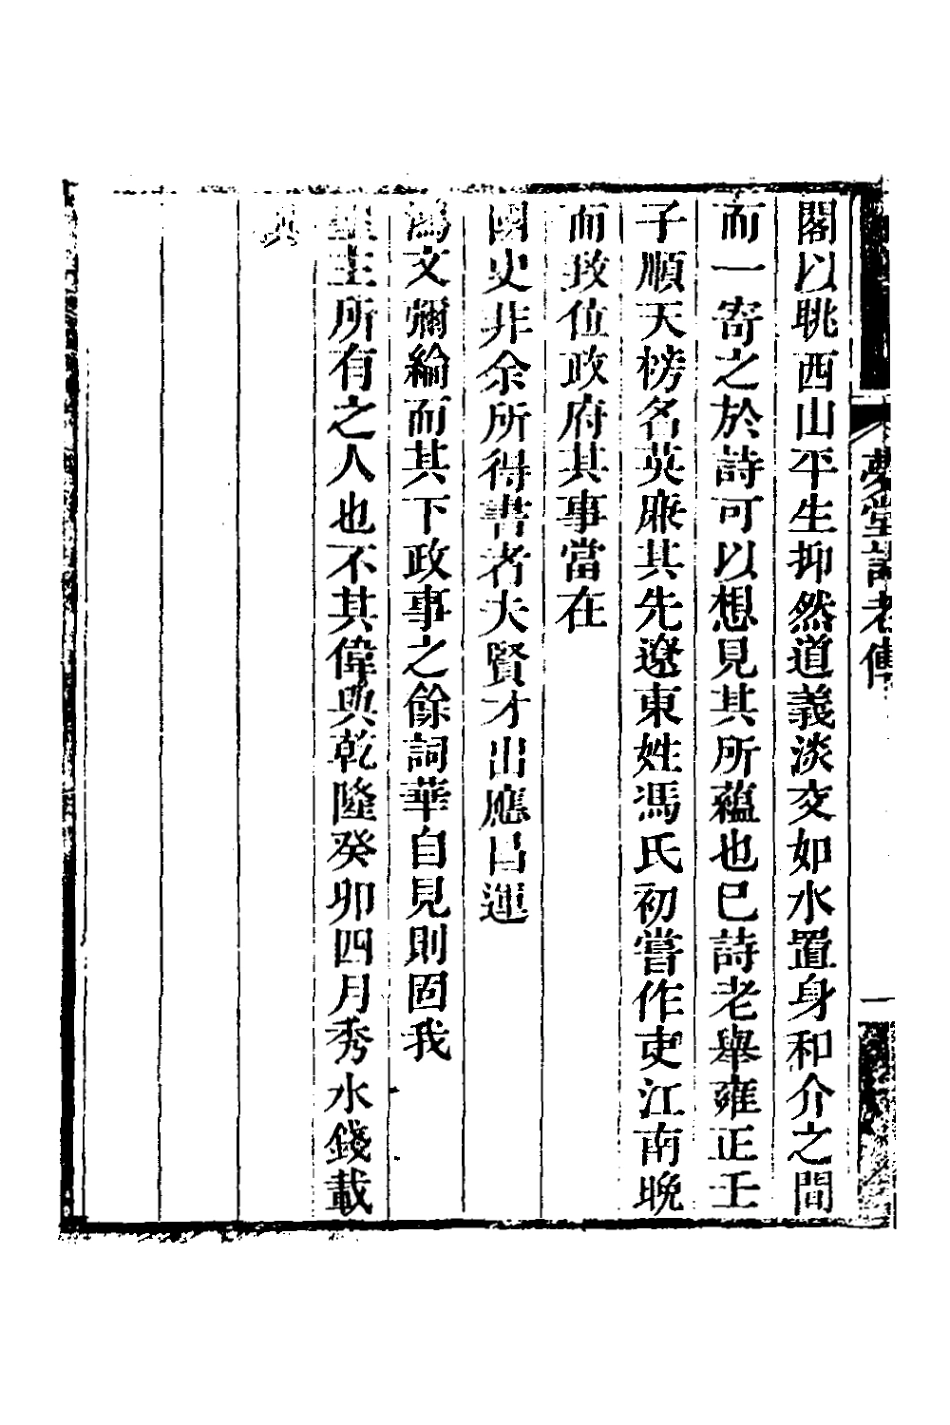 夢堂詩老傳
一
閣以眺西山平生抑然道義淡交如水置身和介之間
而一寄之於詩可以想見其所蘊也巳詩老舉雍正壬
子順天榜名英廉其先遼東姓馮氏初嘗作吏江南晚
而致位政府其事當在
國史非余所得書者夫賢才出應昌運
鴻文彌綸而其下政事之餘詞華自見則固我
聖主所有之人也不其偉與乾隆癸卯四月秀水錢載
具